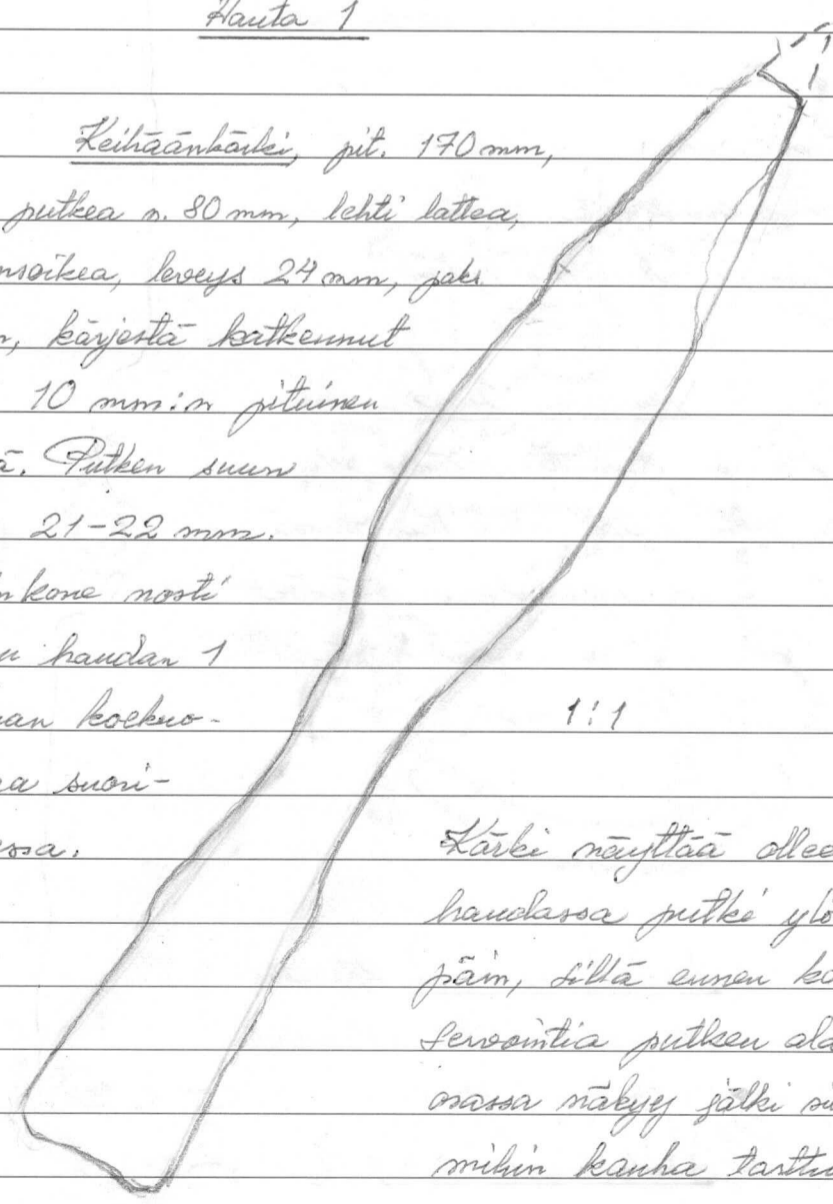 Hauta 1
Keihäänkärki, pit. 170 mm,
putkea n. 80 mm, lehti lattea,
nsoikea, leveys 24 mm, paks.
n, kärjestä katkennut
10 mm:n pituinen
ä. Putken suun
21-22 mm.
nkone nosti
n haudan 1
an koekuo-
a suori-
ssa.
1:1
Kärki näyttää ollee
haudassa putki ylö
päin, sillä ennen ko
servointia putken ala
osassa näkyy jälki si
mihin kauha tarttu